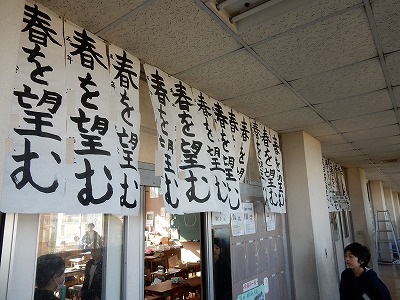 春を望む
春を望む
春を望む
春を望む
春を望む
春を望む
春を望む
春を望む
春を望む
春を望む
春を望む